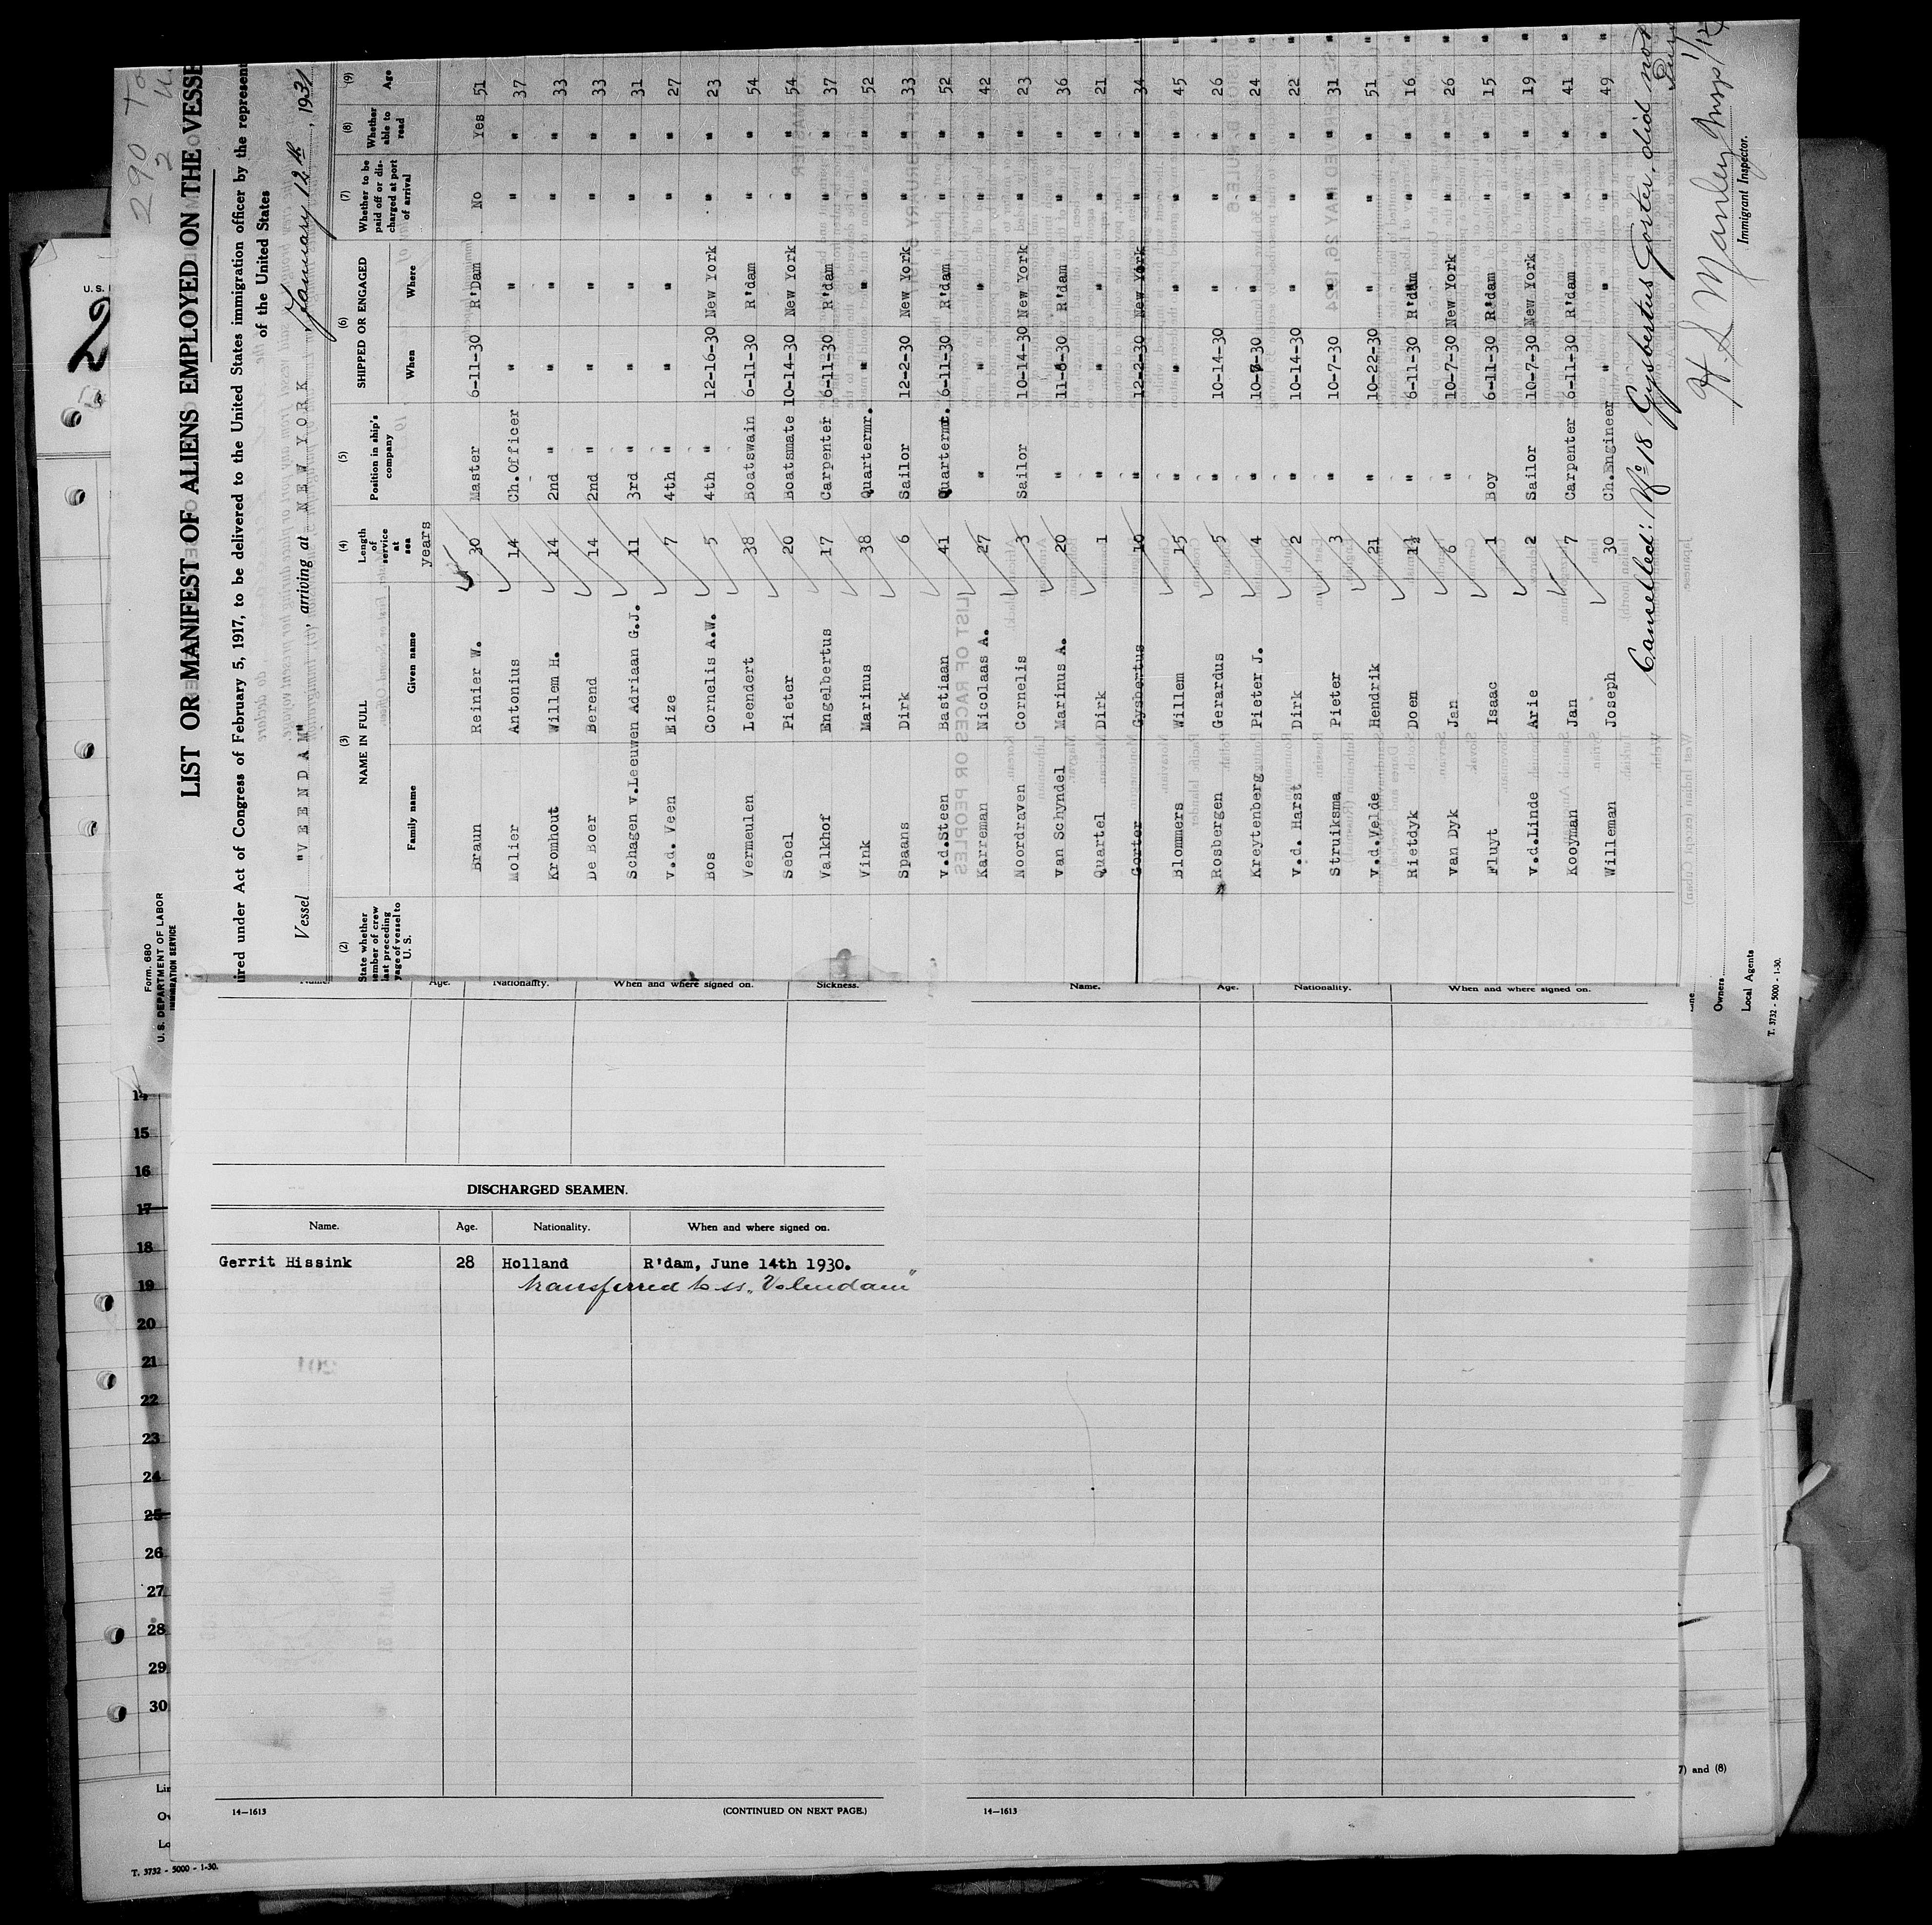 290 To
2
Form. 680
U. S. DEPARTMENT OF LABOR
IMMIGRATION SERVICE
LIST OR MANIFEST OF ALIENS EMPLOYED ON THE VESSE
ired under Act of Congress of February 5, 1917, to be delivered to the United States immigration officer by the represent
of the United States
Vessel "VEENDAM", arriving at NEW YORK, January 12th, 1931
(2) (3) (4) (5) (6) (7) (8) (9)
State whether member of crew last preceding voyage of vessel to U. S. NAME IN FULL Length of service at sea Position in ship's company SHIPPED OR ENGAGED Whether to be paid off or discharged at port of arrival Whether able to read Age
Family name Given name years When Where
Braun Reinier W. 30 Master 6-11-30 R'Dam No Yes 51
Molier Antonius 14 Ch.Officer " " " " 37
Kromhout Willem H. 14 2nd " " " " " 33
De Boer Berend 14 2nd " " " " " 33
Schagen v.Leeuwen Adriaan G.J. 11 3rd " " " " " 31
v.d. Veen Eize 7 4th " " " " " 27
Bos Cornelis A.W. 5 4th " 12-16-30 New York " " 23
Vermeulen Leendert 38 Boatswain 6-11-30 R'dam " " 54
Sebel Pieter 20 Boatsmate 10-14-30 New York " " 54
Valkhof Engelbertus 17 Carpenter 6-11-30 R'dam " " 37
Vink Marinus 38 Quartermr. " " " " 52
Spaans Dirk 6 Sailor 12-2-30 New York " " 33
v.d.Steen Bastiaan 41 Quartermt. 6-11-30 R'dam " " 52
Karreman Nicolaas A. 27 " " " " " 42
Noordraven Cornelis 3 Sailor 10-14-30 New York " " 23
van Schyndel Marinus A. 20 " 11-8-30 R'dam " " 36
Quartel Dirk 1 " " " " " 21
Gorter Gysbertus 10 " 12-2-30 New York " " 34
Blommers Willem 15 " " " " " 45
Rosbergen Gerardus 5 " 10-14-30 " " " 26
Kreytenberg Pieter J. 4 " 10-7-30 " " " 24
v.d. Harst Dirk 2 " 10-14-30 " " " 22
Struiksma Pieter 3 " 10-7-30 " " " 31
v.d.Velde Hendrik 21 " 10-22-30 " " " 51
Rietdyk Doen 1½ " 6-11-30 R'dam " " 16
van Dyk Jan 6 " 10-7-30 New York " " 26
Fluyt Isaac 1 Boy 6-11-30 R'dam " " 15
v.d.Linde Arie 2 Sailor 10-7-30 New York " " 19
Kooyman Jan 7 Carpenter 6-11-30 R'dam " " 41
Willeman Joseph 30 Ch.Engineer " " " " 49
Cancelled: No 18 Gysbertus Gorter, did not
H S Manley Insp 1/12
Immigrant Inspector.
Owners
Local Agents
T. 3732 - 5000 - 1-30.
U. S.
2
Name. Age. Nationality. When and where signed on. Sickness.
Name. Age. Nationality. When and where signed on.
DISCHARGED SEAMEN.
Name. Age. Nationality. When and where signed on.
Gerrit Hissink 28 Holland R'dam, June 14th 1930.
transferred to ss. "Volendam"
14
15
16
17
18
19
20
21
22
23
24
25
26
27
28
29
30
Lin
Ow
Lo
7) and (8)
14—1613 (CONTINUED ON NEXT PAGE.)
14—1613
T. 3732 - 5000 - 1-30.